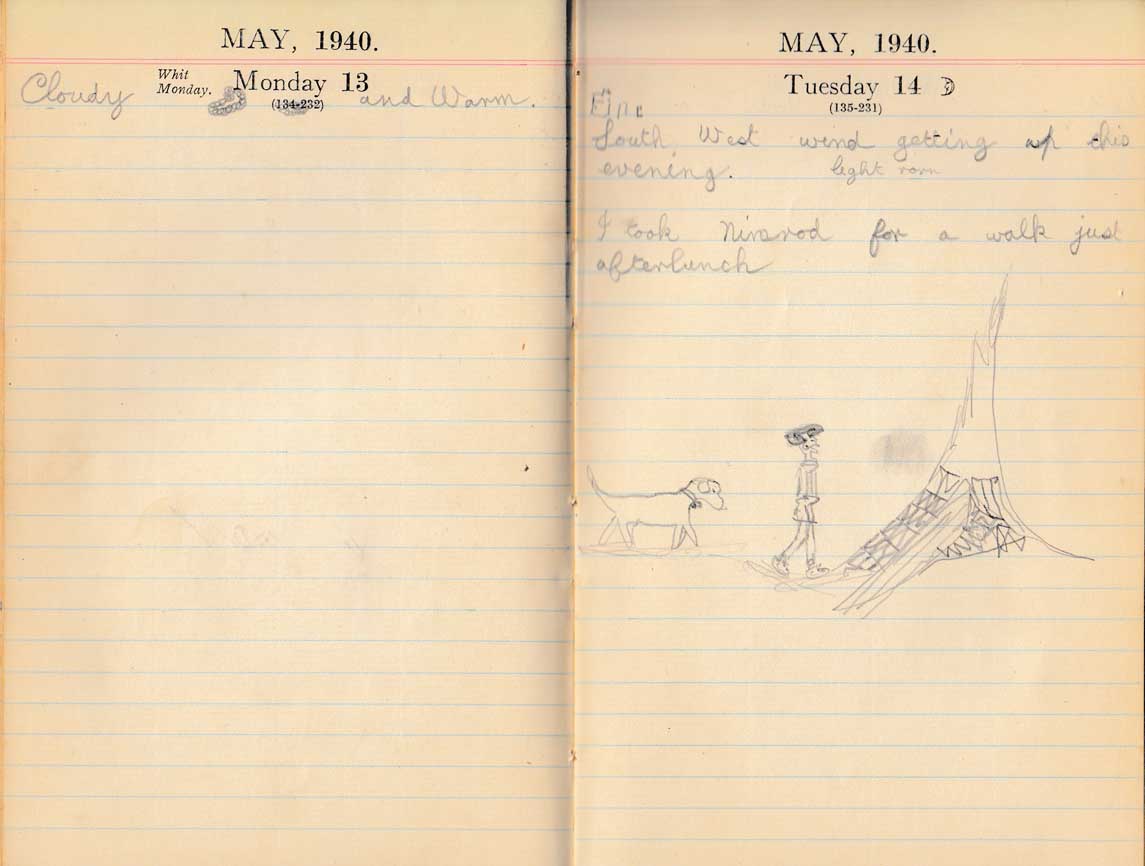 MAY, 1940.
Whit
Monday.
Monday 13
(134-232)
Cloudy and Warm.
MAY, 1940.
Tuesday 14
(135-231)
Fine
South West wind getting up this
evening. light rain
I took Nimrod for a walk just
afterlunch